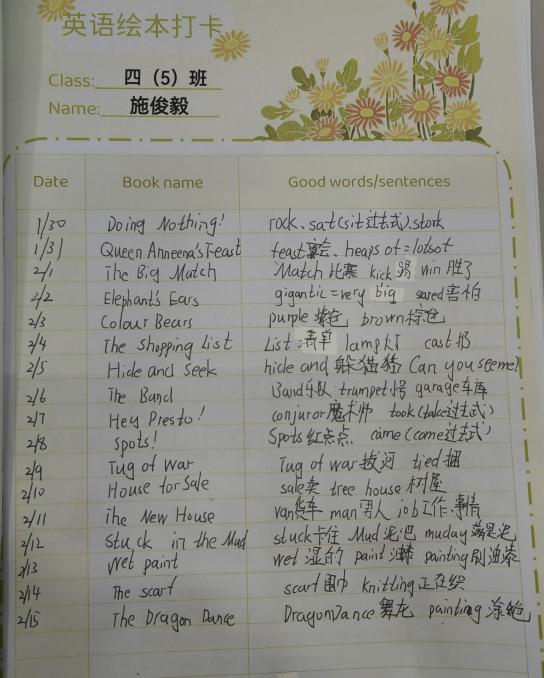 英语绘本打卡
Class: 四（5）班
Name: 施俊毅
Date Book name Good words/sentences
1/30 Doing Nothing! rock、sat(sit过去式).stork
1/31 Queen Anneena's Feast feast宴会、heaps of=lotsof
2/1 The Big Match Match 比赛 kick 踢 win 胜了
2/2 Elephant's Ears gigantic=very big sared害怕
2/3 Colour Bears purple 紫色 brown棕色
2/4 The Shopping List List 清单 lamp灯 cast 扔
2/5 Hide and Seek hide and 躲猫猫 Can you seeme?
2/6 The Band Band乐队 trumpet小号 garage车库
2/7 Hey Presto! conjuror魔术师 took(take过去式)
2/8 Spots! Spots 红点点 came(come过去式)
2/9 Tug of War Tug of war 拔河 tied 捆
2/10 House for Sale sale卖 tree house 树屋
2/11 The New House van货车 man男人 job工作、事情
2/12 Stuck in the Mud stuck卡住 Mud 泥巴 muday 满是泥
2/13 Wet paint wet 湿的 paint 油漆 painting 刷油漆
2/14 The scarf scarf 围巾 knitting正在织
2/15 The Dragon Dance DragonDance 舞龙 painting 涂绘